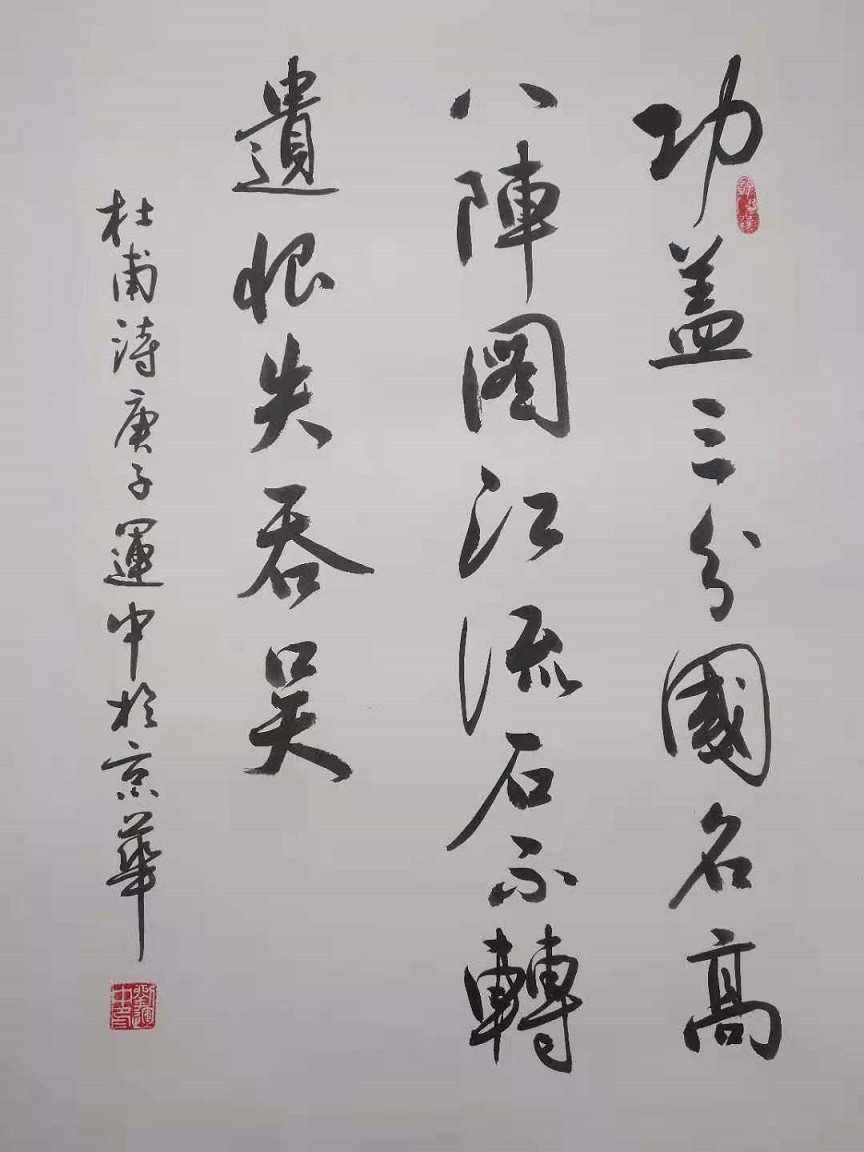 功盖三分國名高
八陣圖江流石不轉
遺恨失吞吴
杜甫詩庚子運中於京華